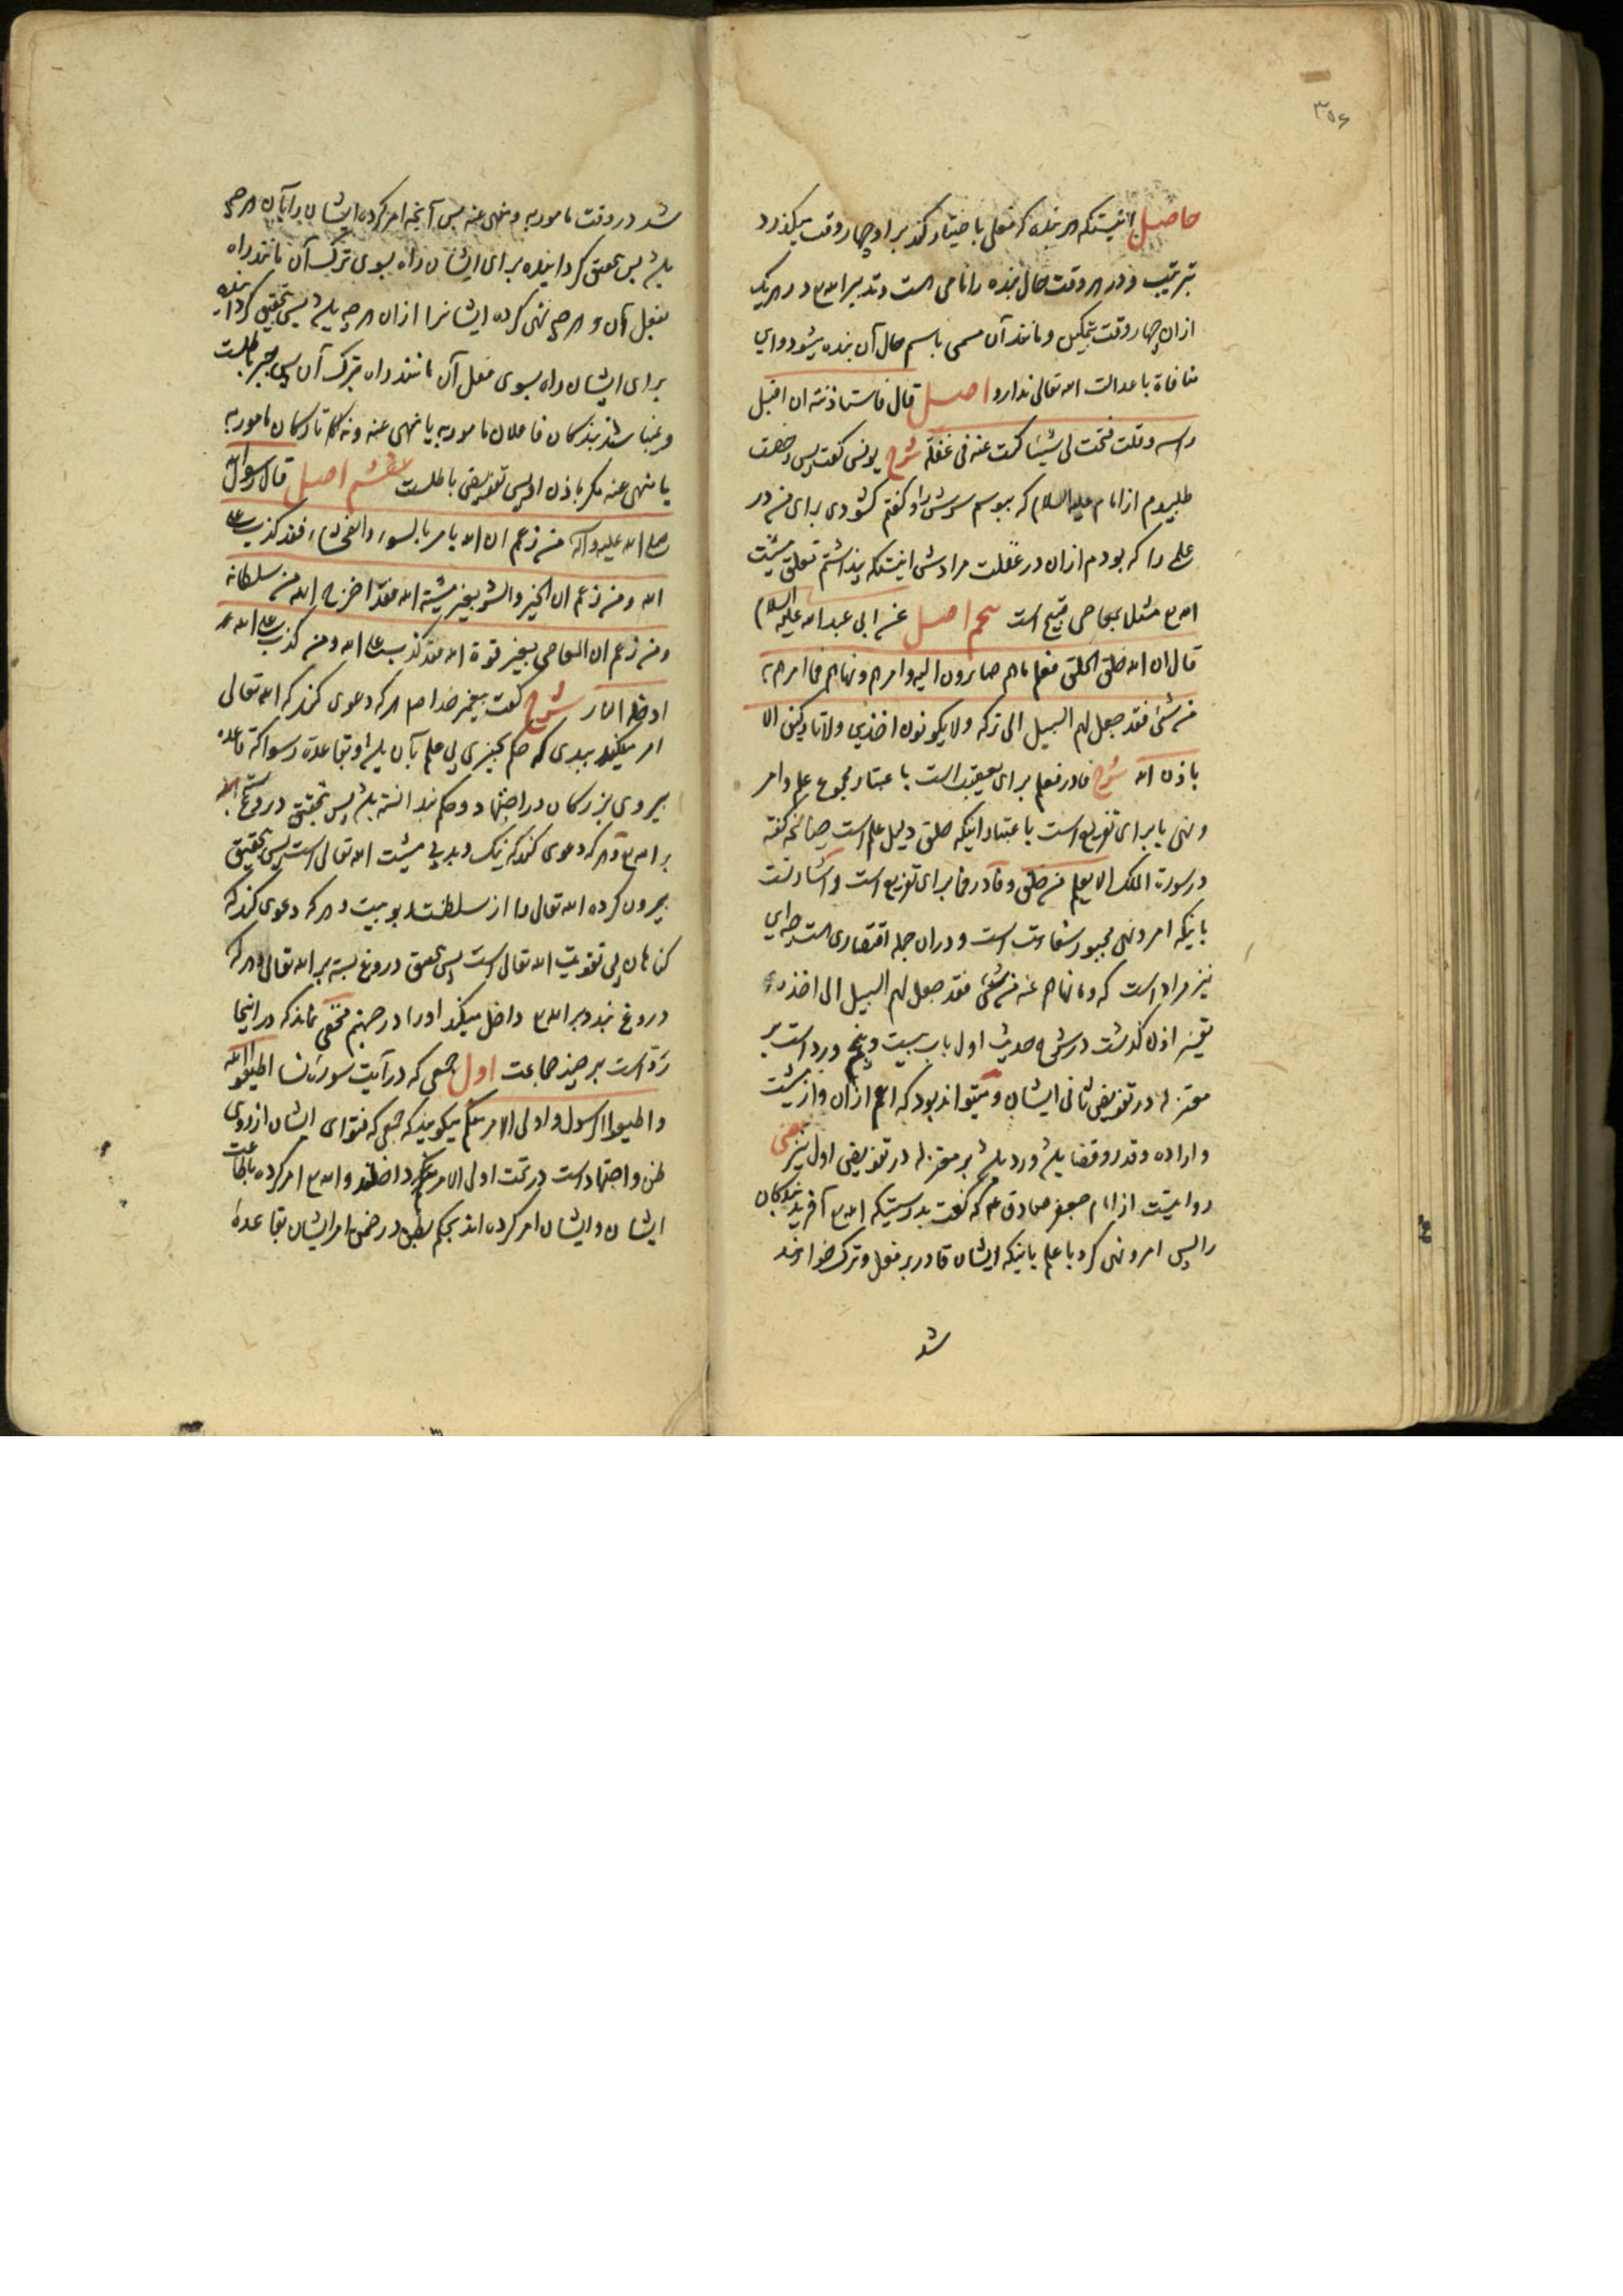 ۳۵۶
حاصل اینستکه هر بنده که فعلی باختیار کند بر او چهار وقت میکذرد
بترتیب و در هر وقت حال بنده را نامی است و تدبیر الله تع در هر یک
ازان چهار وقت بتمکین و مانند آن مسمی باسم حال آن بنده میشود و این
منافاة با عدالت الله تعالی ندارد اصل قال فاستاذنته ان اقبل
راسه و قلت فتحت لی شیئا کنت عنه فی غفلة شرح یونس کفت پس رخصت
طلبیدم از امام علیه السلام که ببوسم سرش را و کفتم کشودی برای من در
علمی را که بودم ازان در غفلت مرادش اینستکه پنداشتم تعلق مشیت
الله تع مثل بمعاصی قبیح است پنجم اصل عن ابی عبد الله علیه السلام
قال ان الله خلق الخلق فعلم ما هم صایرون الیه و امرهم و نهاهم فما امرهم به
من شیٔ فقد جعل لهم السبیل الی ترکه ولا یکونون اخذین ولا تارکین الا
باذن الله شرح فا در فعلم برای تعقیب است باعتبار مجموع علم و امر
و نهی یا برای تفریع است باعتبار اینکه خلق دلیل علم است چنانچه کفته
در سورة الملک الا یعلم من خلق و فا در فما برای تفریع است و اشارتست
باینکه امر و نهی مجبور سفاهت است و دران جمله اقتصاری هست چه این
نیز مراد است که و ما نهاهم عنه من شیٔ فقد جعل لهم السبیل الی اخذه
تفسیر اذن کذشت در شرح حدیث اول باب بیست و پنجم و رد است بر
معتزله در تفویض ثانی ایشان و میتواند بود که اعم ازان و از مشیت
و اراده و قدر و قضا باشد و رد باشد بر معتزله در تفویض اول نیز یعنی
روایتست از امام جعفر صادق ع که کفت بدرستیکه الله تع آفرید بندکان
را پس امر و نهی کرد با علم باینکه ایشان قادر بر فعل و ترک خواهند
شد
شد در وقت مامور به و منهی عنه پس آنچه امر کرده ایشان را بآن هر چه
باشد پس بتحقیق کردانیده برای ایشان راه بسوی ترک آن مانند راه
بفعل آن و هر چه نهی کرده ایشانرا ازان هر چه باشد پس بتحقیق کردانیده
برای ایشان راه بسوی فعل آن مانند راه بترک آن پس جبر باطلست
و نمیباشند بندکان فاعلان مامور به یا منهی عنه و نه تارکان مامور به
یا منهی عنه مکر باذن او پس تفویض باطلست ششم اصل قال رسول الله
صلی الله علیه و آله من زعم ان الله یامر بالسوء و الفحشاء فقد کذب علی
الله و من زعم ان الخیر و الشر بغیر مشیته الله فقد اخرج الله من سلطانه
و من زعم ان المعاصی بغیر قوة الله فقد کذب علی الله و من کذب علی الله
ادخله النار شرح کفت پیغمبر خدا ص هر که دعوی کند که الله تعالی
امر میکند ببدی که حکم بچیزی بی علم بآن باشد و بقاعده رسوا که قاعده
پیروی بزرکان در اجتهاد و حکم ندانسته باشد پس بتحقیق دروغ بسته
بر الله تع و هر که دعوی کند که نیک و بد بی مشیت الله تعالی است پس بتحقیق
بیرون کرده الله تعالی را از سلطنت ربوبیت و هر که دعوی کند که
کناهان بی تقویت الله تعالی است پس بتحقیق دروغ بسته بر الله تعالی و هر که
دروغ بندد بر الله تع داخل میکند او را در جهنم مخفی نماند که در اینجا
رد است بر چند جماعت اول جمعی که در آیت سوره نسا اطیعوا الله
و اطیعوا الرسول و اولی الامر منکم میکویند که جمعی که فتوای ایشان از روی
ظن و اجتهاد است در تحت اولی الامر منکم داخلند و الله تع امر کرده باطاعت
ایشان و ایشان امر کرده اند بحکم بظن در ضمن امر ایشان بقاعده